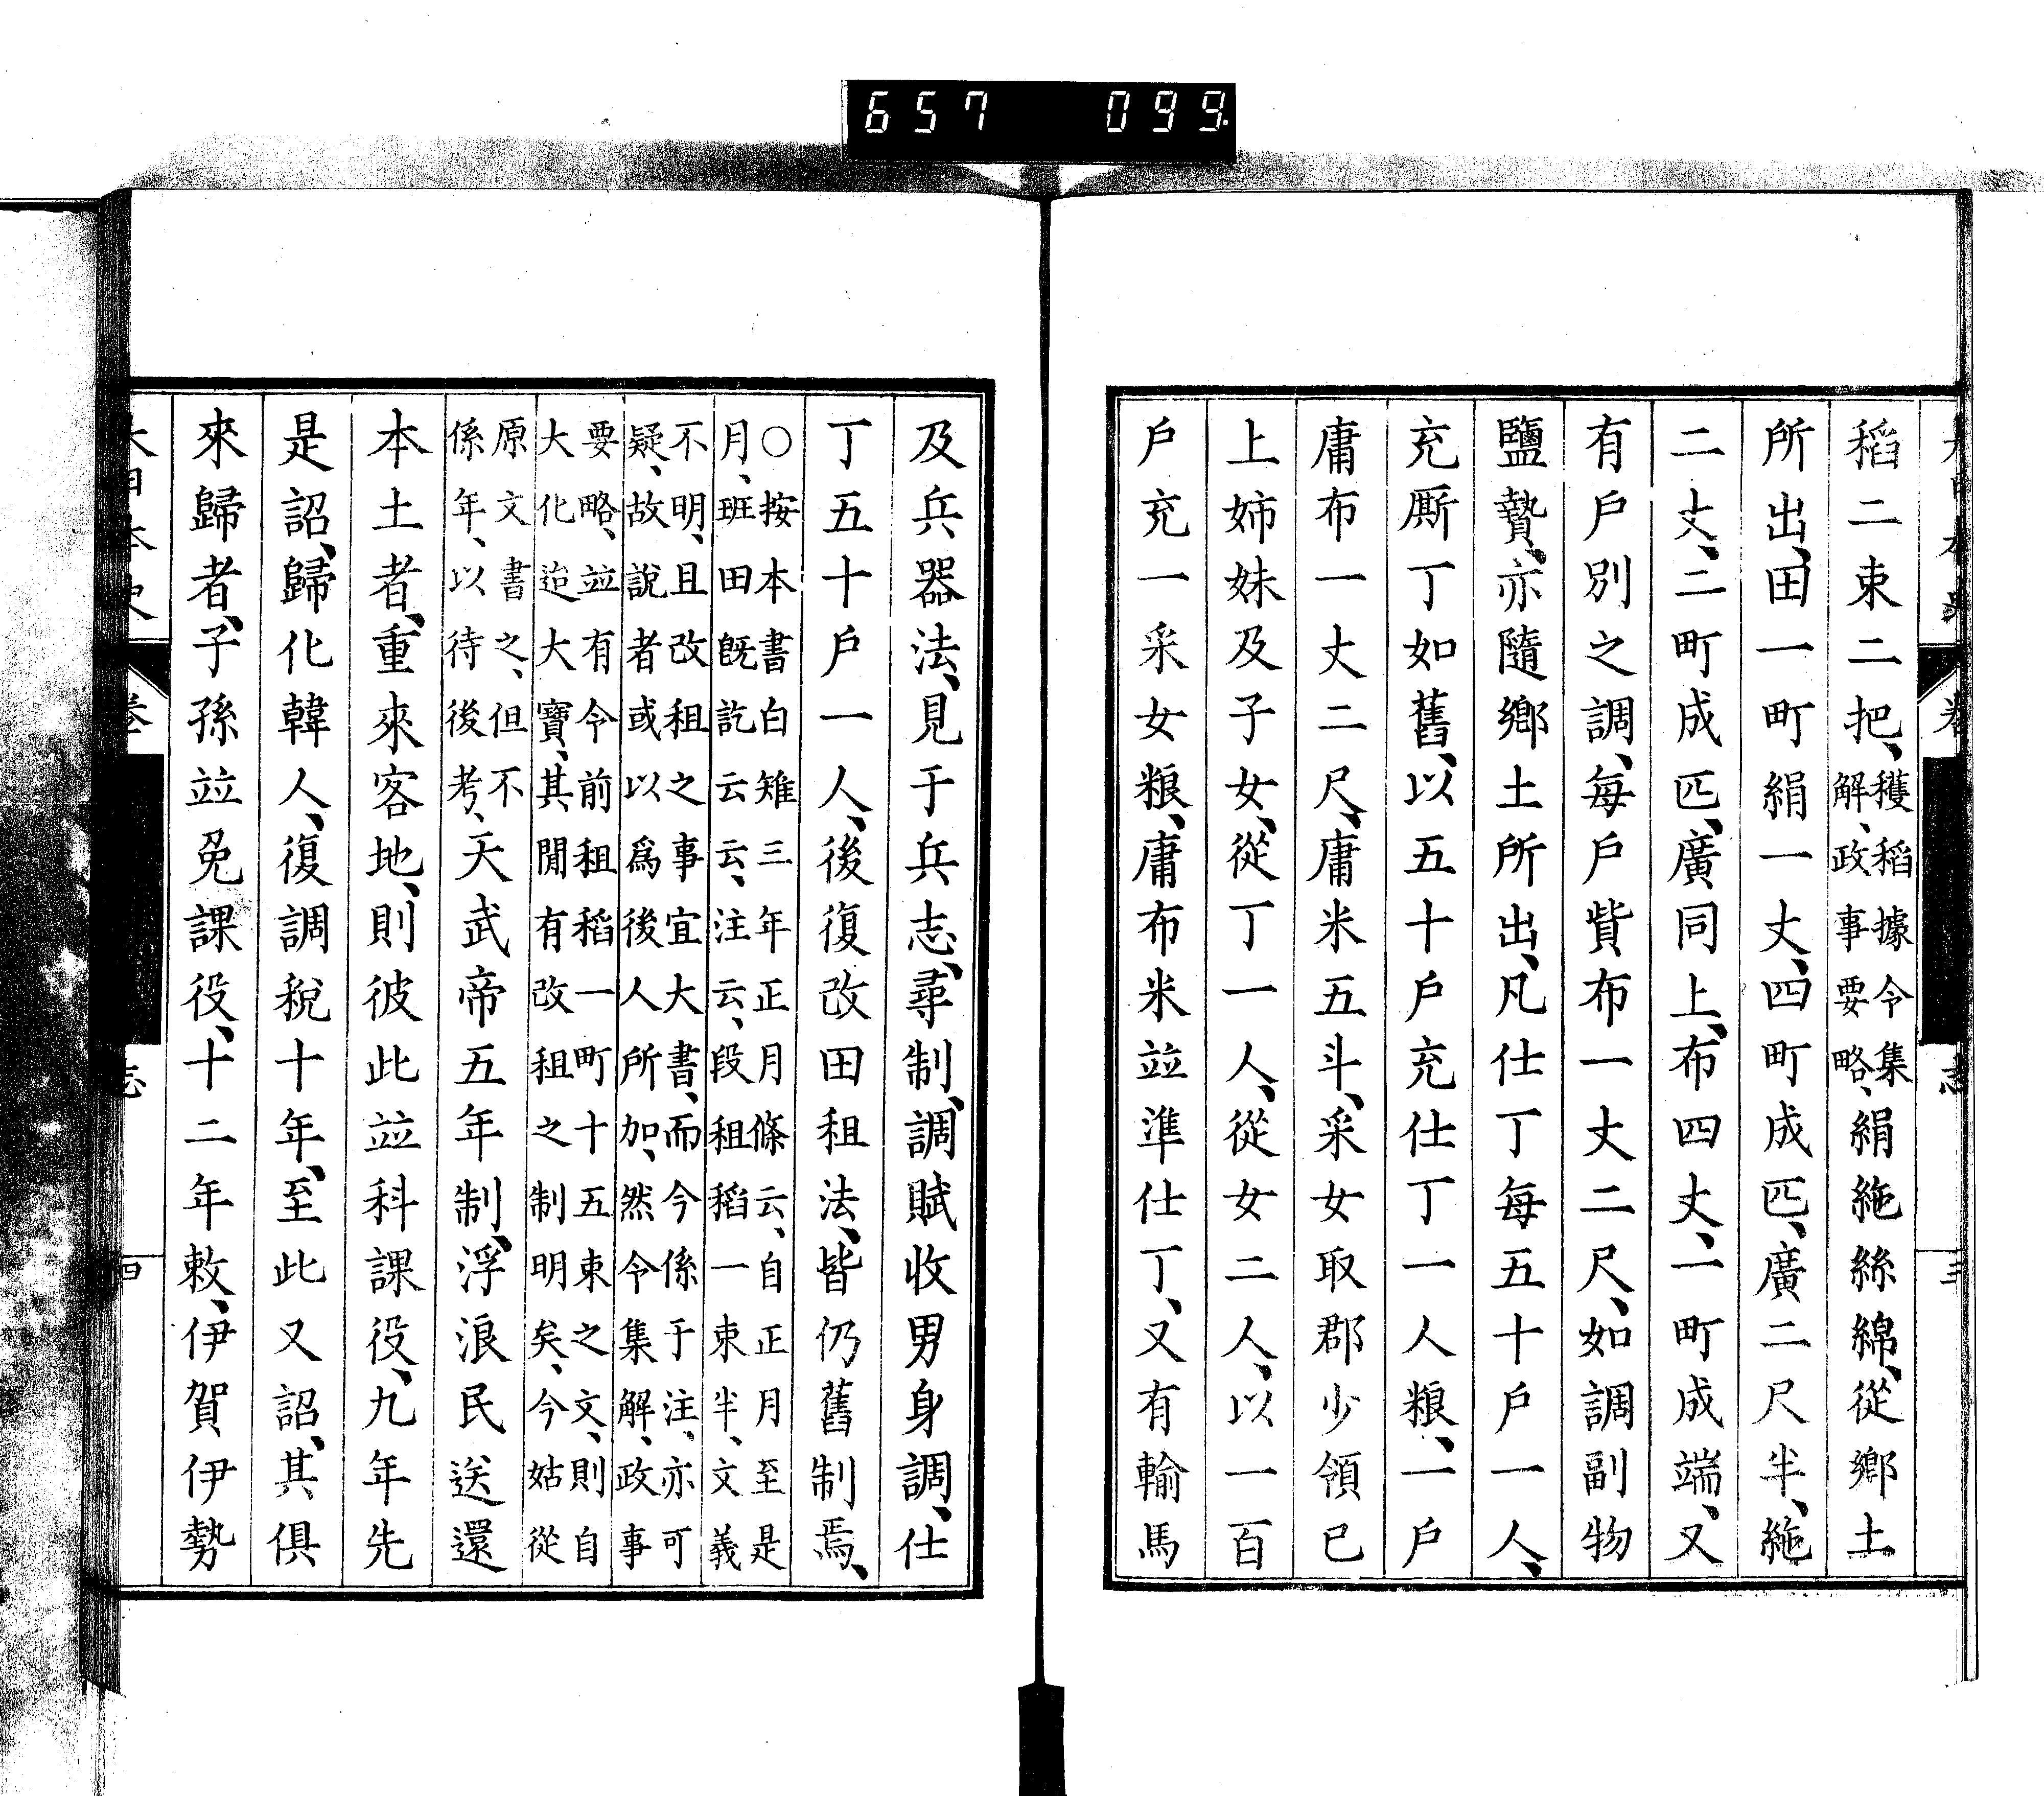 657 099.
稻二束二把、穫稻據令集解、政事要略、絹絁絲綿、從鄉土
所出、田一町絹一丈、四町成匹、廣二尺半、絁
二丈、二町成匹、廣同上、布四丈、一町成端、又
有戶別之調、每戶貲布一丈二尺、如調副物
鹽贄、亦隨鄉土所出、凡仕丁每五十戶一人、
充廝丁如舊、以五十戶充仕丁一人粮、一戶
庸布一丈二尺、庸米五斗、采女取郡少領已
上姉妹及子女、從丁一人、從女二人、以一百
戶充一采女粮、庸布米竝準仕丁、又有輸馬
及兵器法、見于兵志、尋制、調賦收男身調、仕
丁五十戶一人、後復改田租法、皆仍舊制焉、
○按本書白雉三年正月條云、自正月至是
月、班田既訖云云、注云、段租稻一束半、文義
不明、且改租之事宜大書、而今係于注、亦可
疑、故說者或以爲後人所加、然令集解、政事
要略、竝有令前租稻一町十五束之文、則自
大化迨大寶、其閒有改租之制明矣、今姑從
原文書之、但不
係年、以待後考、天武帝五年制、浮浪民送還
本土者、重來客地、則彼此竝科課役、九年先
是詔、歸化韓人、復調稅十年、至此又詔、其俱
來歸者、子孫竝免課役、十二年敕、伊賀伊勢
大日本史 卷 志 四